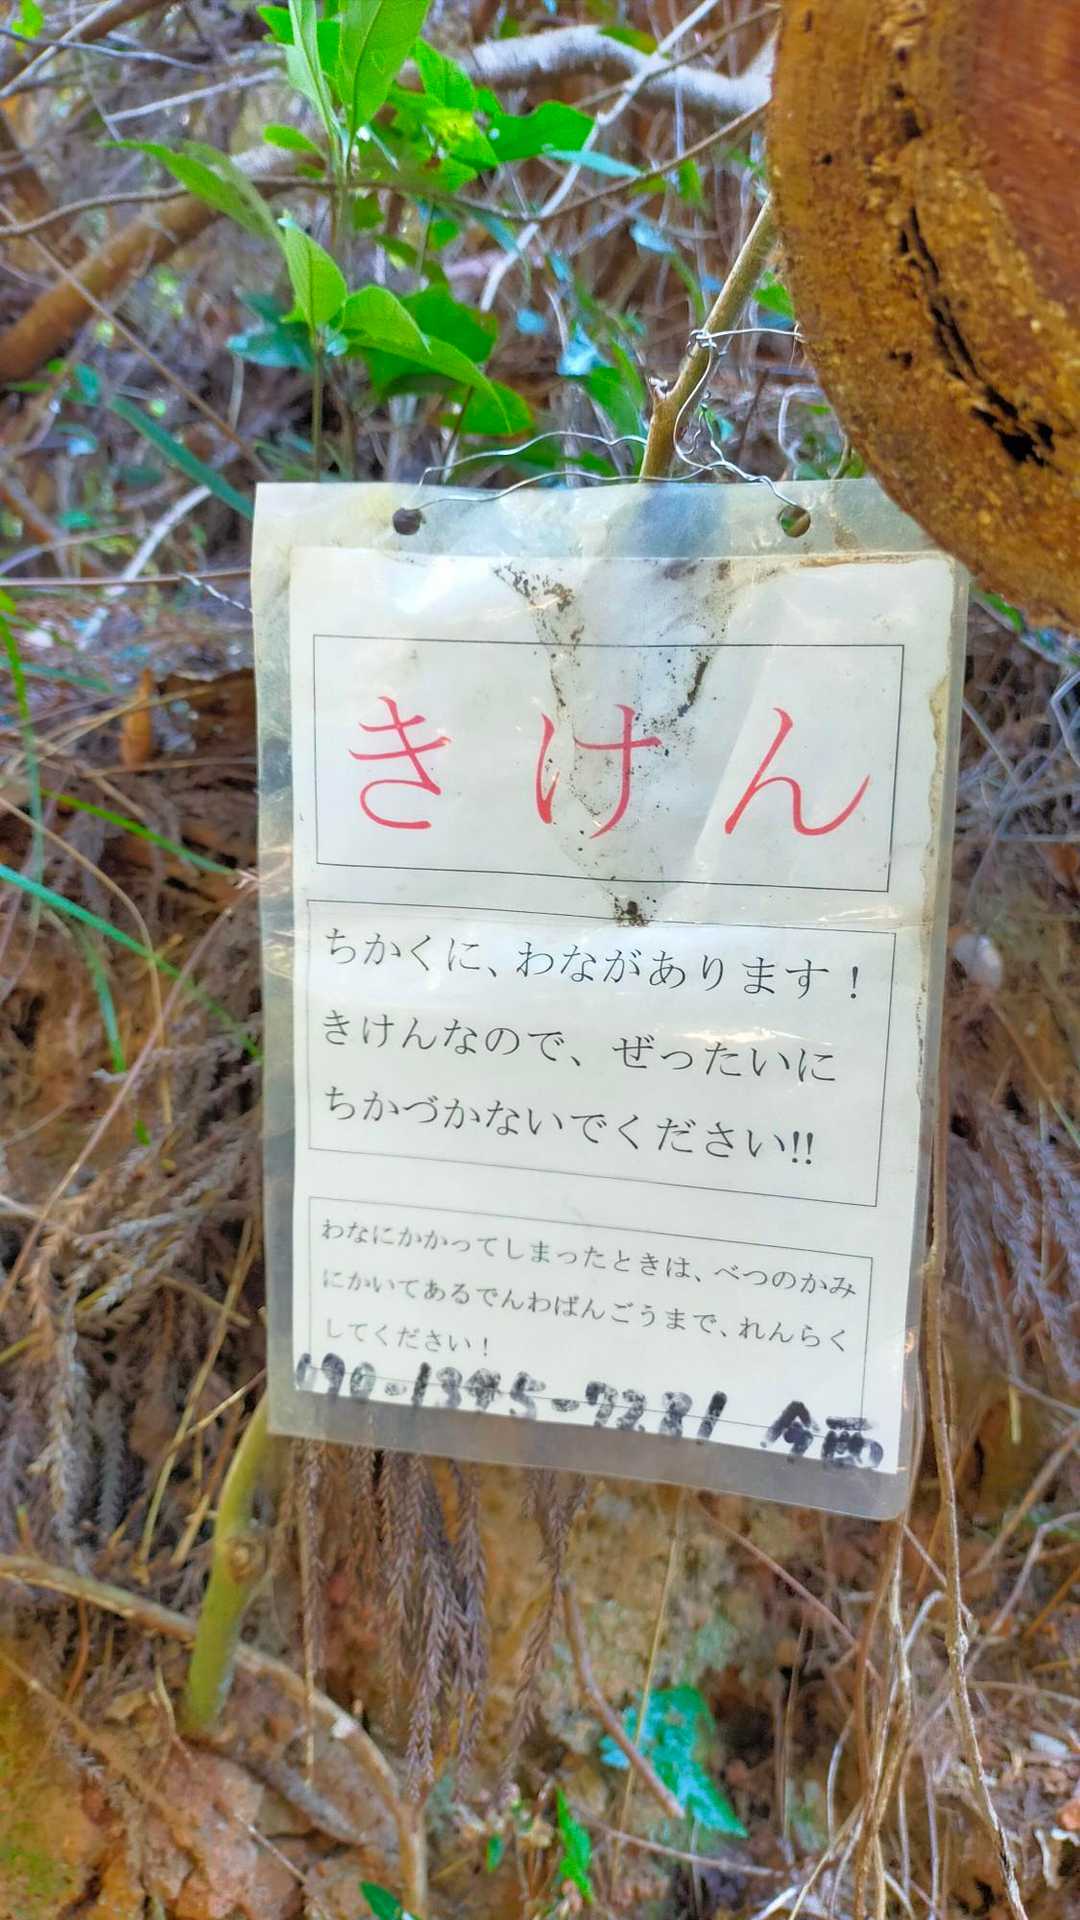 きけん
ちかくに、わながあります！
きけんなので、ぜったいに
ちかづかないでください!!
わなにかかってしまったときは、べつのかみ
にかいてあるでんわばんごうまで、れんらく
してください！
090-1395-7231 今西